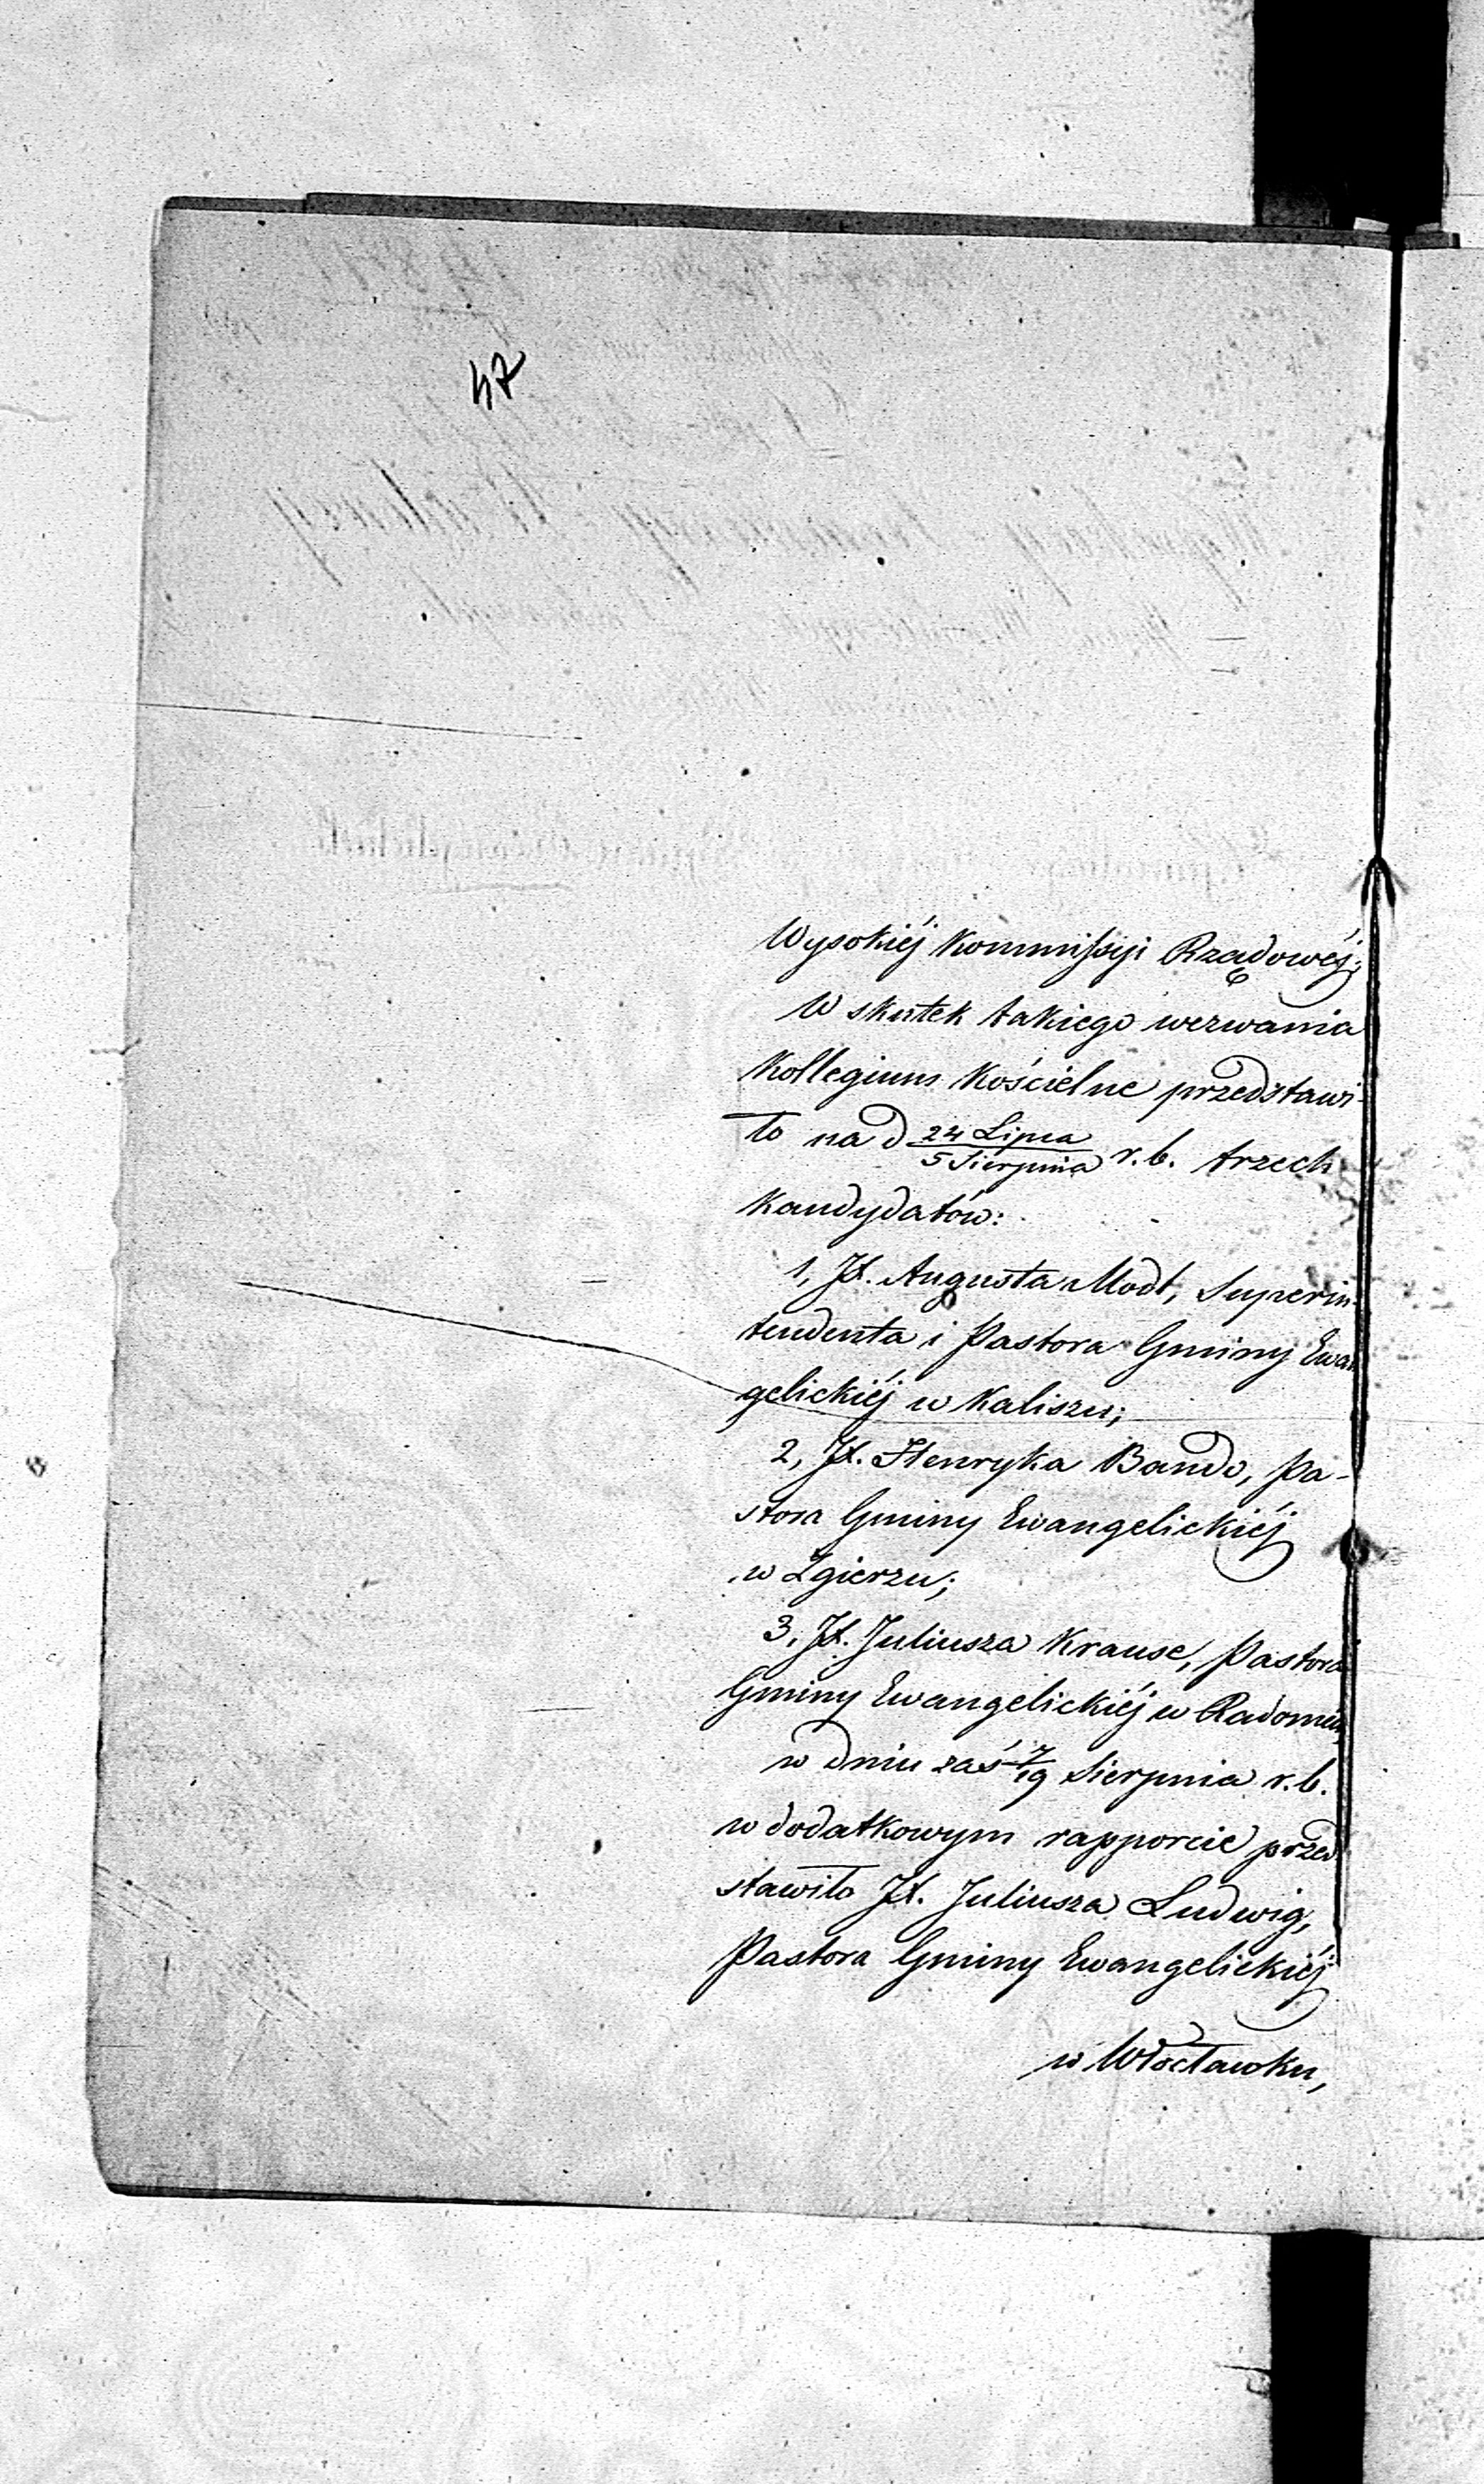 47
Wysokiéj Kommissyi Rządowéj;
W skutek takiego wezwania
Kollegium Kościelne przedstawi-
ło na d 24 Lipca / 5 Sierpnia r. b. trzech
Kandydatów:
1, JX. Augusta Modl, Superin-
tendenta i Pastora Gminy Ewan
gelickiéj w Kaliszu;
2, JX. Henryka Bando, Pa-
stora Gminy Ewangelickiéj
w Zgierzu;
3, JX. Juliusza Krause, Pastora
Gminy Ewangelickiéj w Radomiu,
w dniu zaś 7/19 Sierpnia r. b.
w dodatkowym rapporcie przed
stawiło JX. Juliusza Ludwig,
Pastora Gminy Ewangelickiéj
w Włocławku,